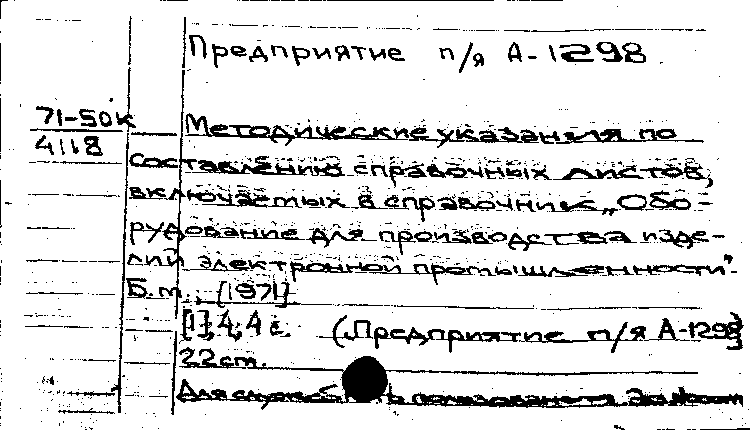 Предприятие п/я А-1298
71-50к
4118
Методические указания по
составлению справочных листов,
включаемых в справочник „Обо-
рудование для производства изде-
лий электронной промышленности".
Б.м., [1971].
[1], 4, 4 с. (Предприятие п/я А-1298)
22 см.
Для служеб пользования